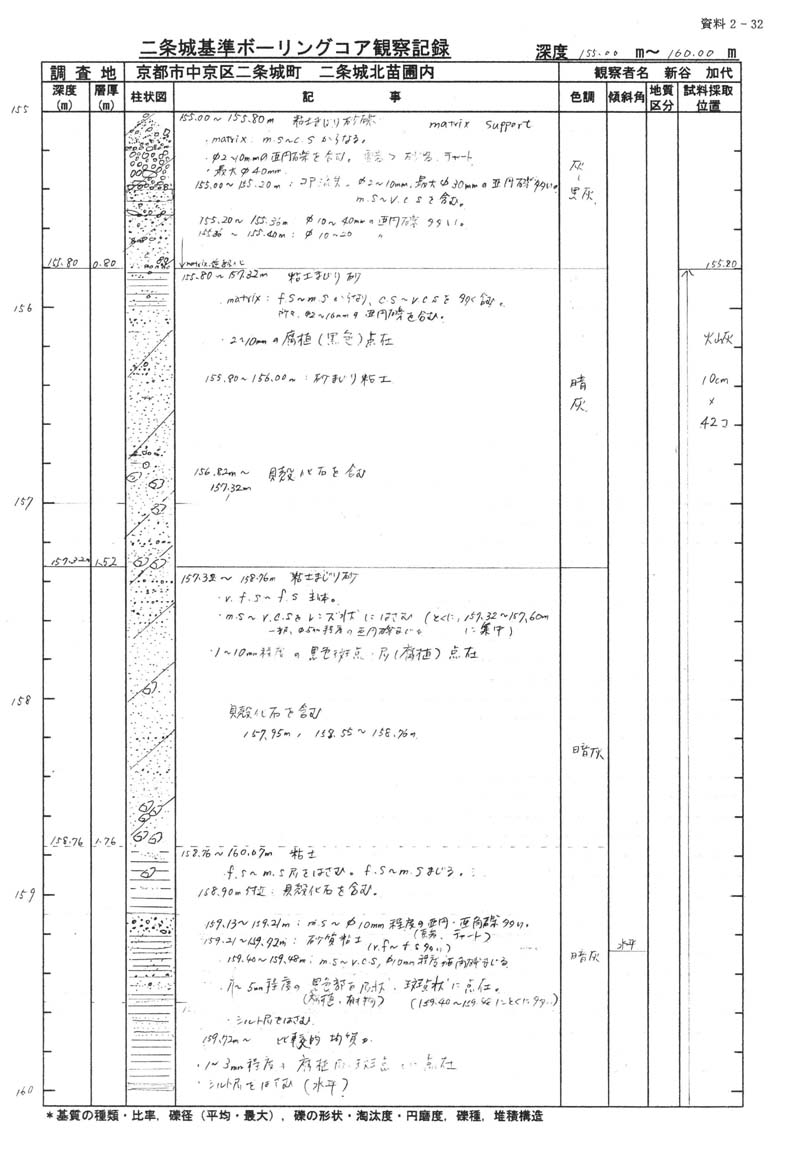 資料2-32
二条城基準ボーリングコア観察記録 深度 155.00 m～ 160.00 m
調査地 京都市中京区二条城町 二条城北苗圃内 観察者名 新谷 加代
深度(m) 層厚(m) 柱状図 記事 色調 傾斜角 地質区分 試料採取位置
155
155.00～155.80m 粘土まじり砂礫 matrix support
・matrix: m.s～c.sからなる。
・φ2～10mmの亜円礫を含む。 チャート
・最大φ40mm
灰～黒灰
155.00～155.20m: φ2～10mm, 最大φ30mmの亜円礫多い。
m.s～v.c.sを含む。
155.20～155.36m φ10～40mmの亜円礫多い。
155.36～155.40m: φ10～20 〃
155.80 0.80 155.80
155.80～157.32m 粘土まじり砂
・matrix: f.s～m.sからなり、c.s～v.c.sを多く含む。
亜円礫を含む。
156
・2～10mmの腐植(黒色)点在
火山灰
10cm
×
42コ
155.90～156.00m: 砂まじり粘土
暗灰
156.82m～ 貝殻化石を含む
157.32m
157
157.32m 1.52
157.32～158.76m 粘土まじり砂
・v.f.s～f.s主体。
・m.s～v.c.sをレンズ状にはさむ (とくに, 157.32～157.60mに集中)
・1～10mm程度の黒色斑点・層(腐植)点在
158
貝殻化石を含む
157.95m, 158.55～158.76m
暗灰
158.76 1.76
158.76～160.07m 粘土
・f.s～m.s層をはさむ。f.s～m.sまじる。
158.90m付近: 貝殻化石を含む。
159
159.13～159.21m: m.s～φ10mm程度の亜円・亜角礫多い。
チャート)
159.21～159.72m: 砂質粘土 (v.f～f.s多い)
水平
・159.40～159.48m: m.s～v.c.s, φ10mm程度
暗灰
5mm程度の黒色部が層状、斑点状に点在。
(159.40～159.48にとくに多い)
・シルト層をはさむ
159.72m～ 比較的均質
・1～3mm程度の腐植 点在
・シルト層をはさむ (水平)
160
*基質の種類・比率, 礫径 (平均・最大), 礫の形状・淘汰度・円磨度, 礫種, 堆積構造